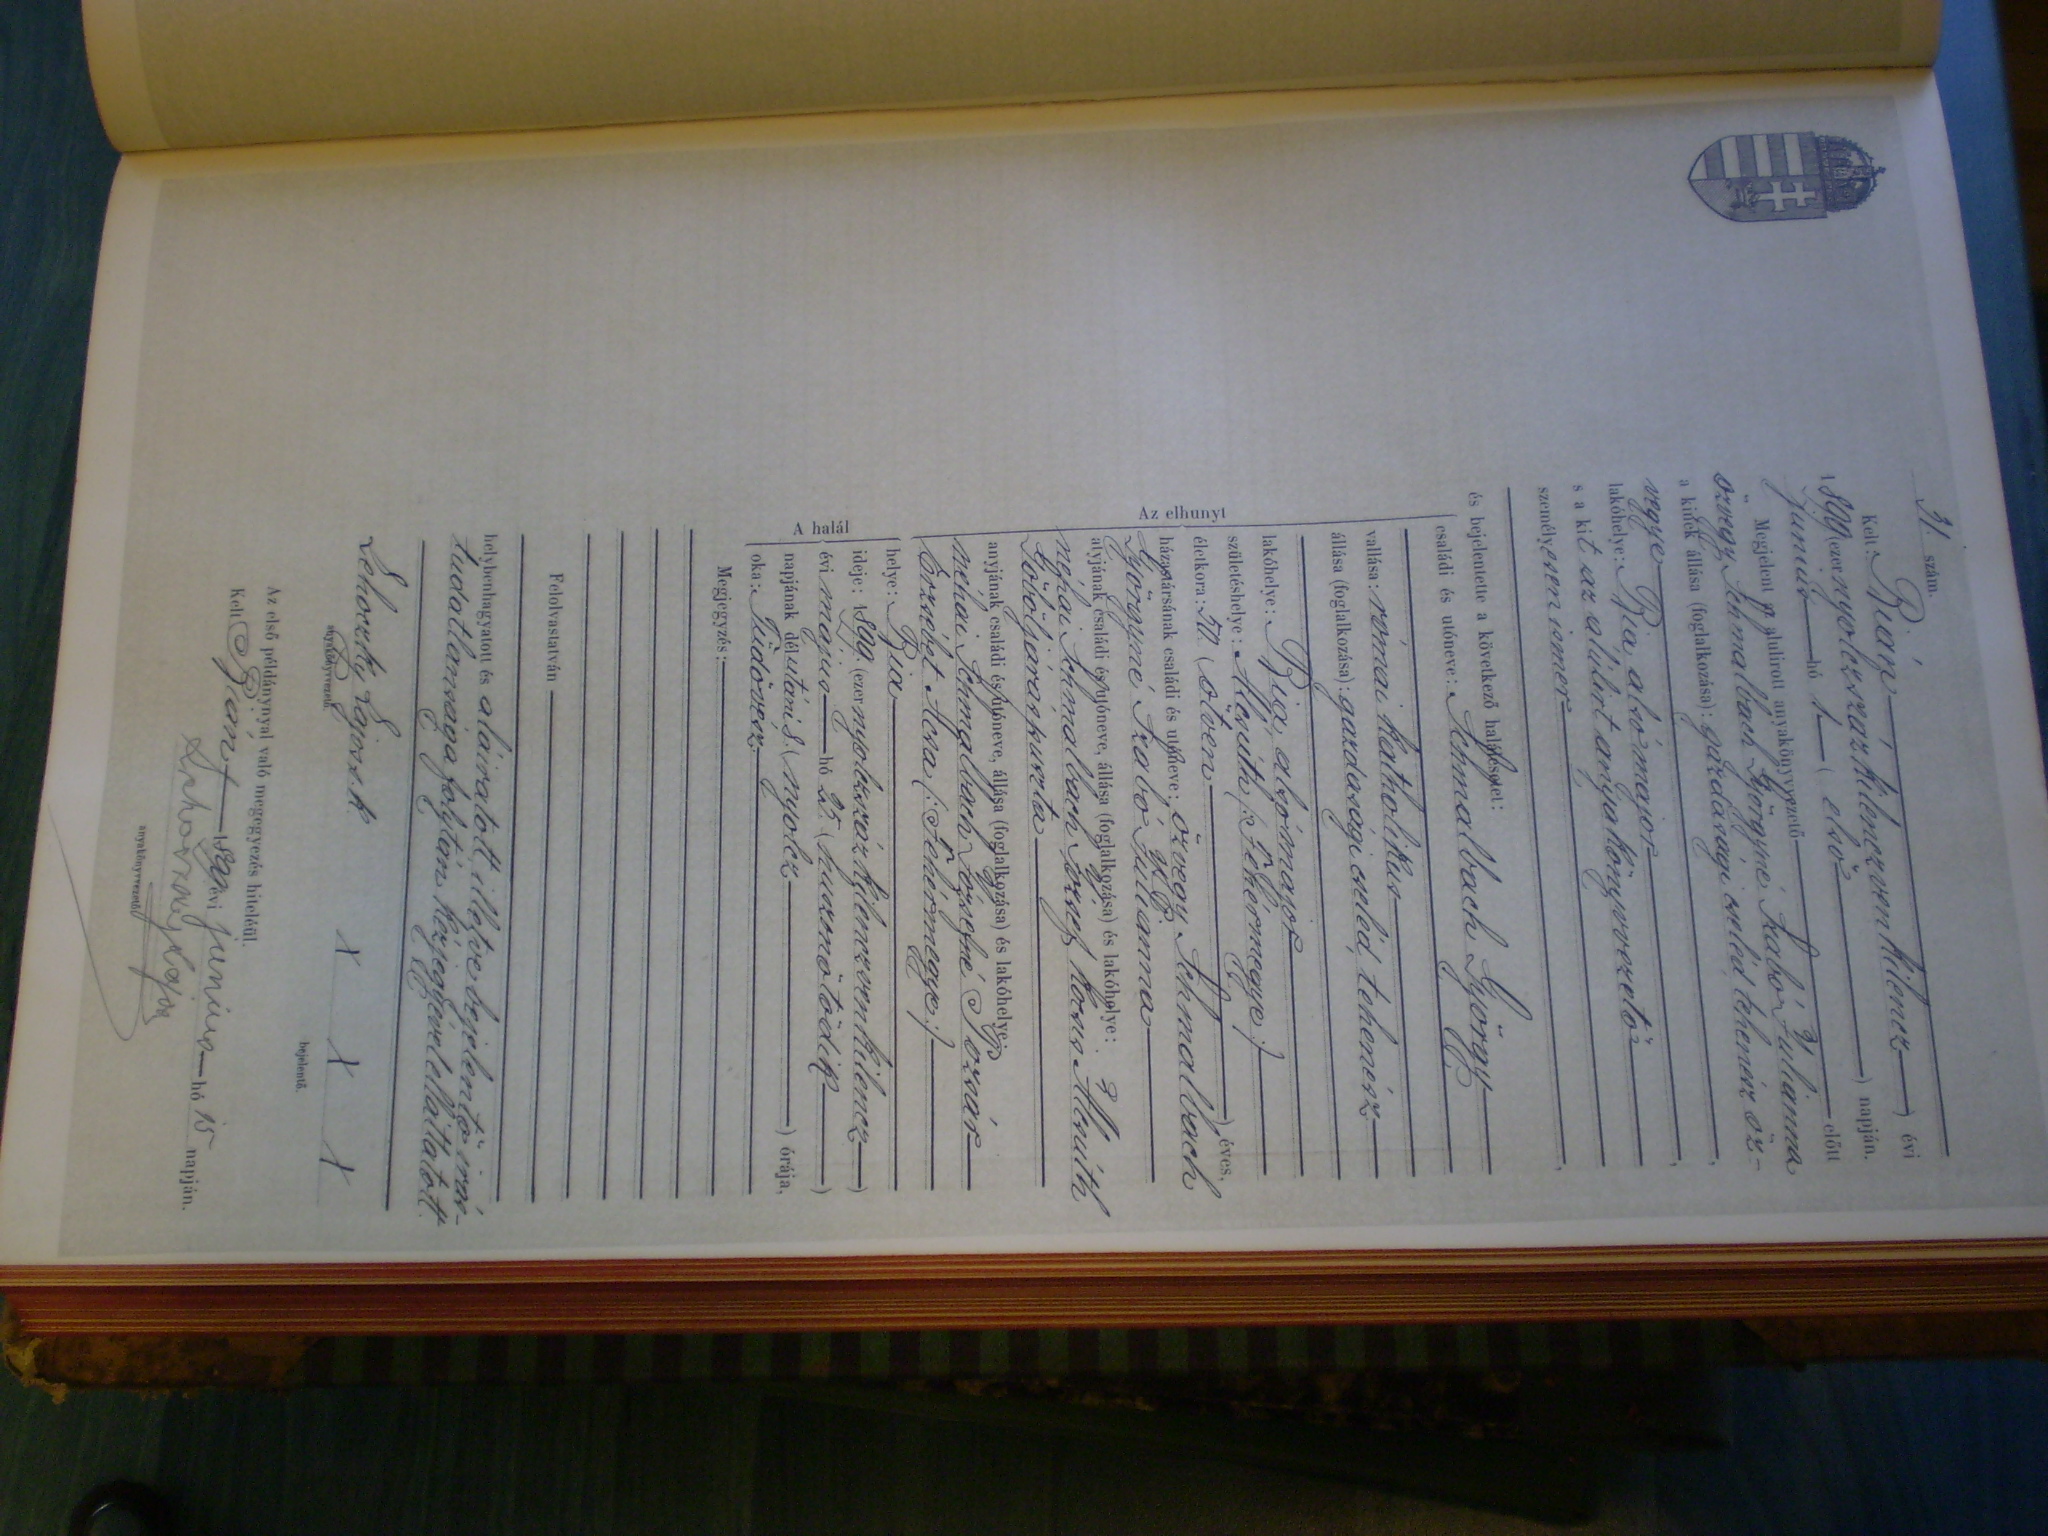 31. szám.
Kelt: Bián, 
1899 (ezernyolczszázkilenczvenkilencz) évi
junius hó 1 (első) napján.
Megjelent az alulirott anyakönyvvezető előtt
özvegy Schmalbach Györgyné Szabó Julianna
a kinek állása (foglalkozása): gazdasági cseléd tehenész öz-
vegye
lakóhelye: Bia alsó major
s a kit az alulirt anyakönyvvezető
személyesen ismer,
és bejelentette a következő halálesetet:
Az elhunyt
családi és utóneve: Schmalbach György
vallása: római katholikus
állása (foglalkozása): gazdasági cseléd, tehenész
lakóhelye: Bia alsómajor
születéshelye: Alcsuth (: Fehérmegye :)
életkora: 50. (ötven) éves,
házastársának családi és utóneve: özvegy Schmalbach
Györgyné Szabó Julianna
atyjának családi és utóneve, állása (foglalkozása) és lakóhelye:
néhai Schmalbach József
Göböljáráspuszta
anyjának családi és utóneve, állása (foglalkozása) és lakóhelye:
néhai Schmalbach Józsefné
Erzsébet Acsa (: Fehérmegye :)
A halál
helye: Bia
ideje: 1899. (ezernyolczszázkilenczvenkilencz)
évi május hó 25. (huszonötödik)
napjának délutáni 8. (nyolcz) órája,
oka: Tüdővész
Megjegyzés:
Felolvastatván
helybenhagyatott és aláiratott, illetve bejelentő irás-
tudatlansága folytán kézjegyével elláttatott.
Lehoczky Lajos s. k.
anyakönyvvezető.
X X X
bejelentő.
Az első példánynyal való megegyezés hiteléül.
Kelt Bián, 1899 évi junius hó 15 napján.
anyakönyvvezető